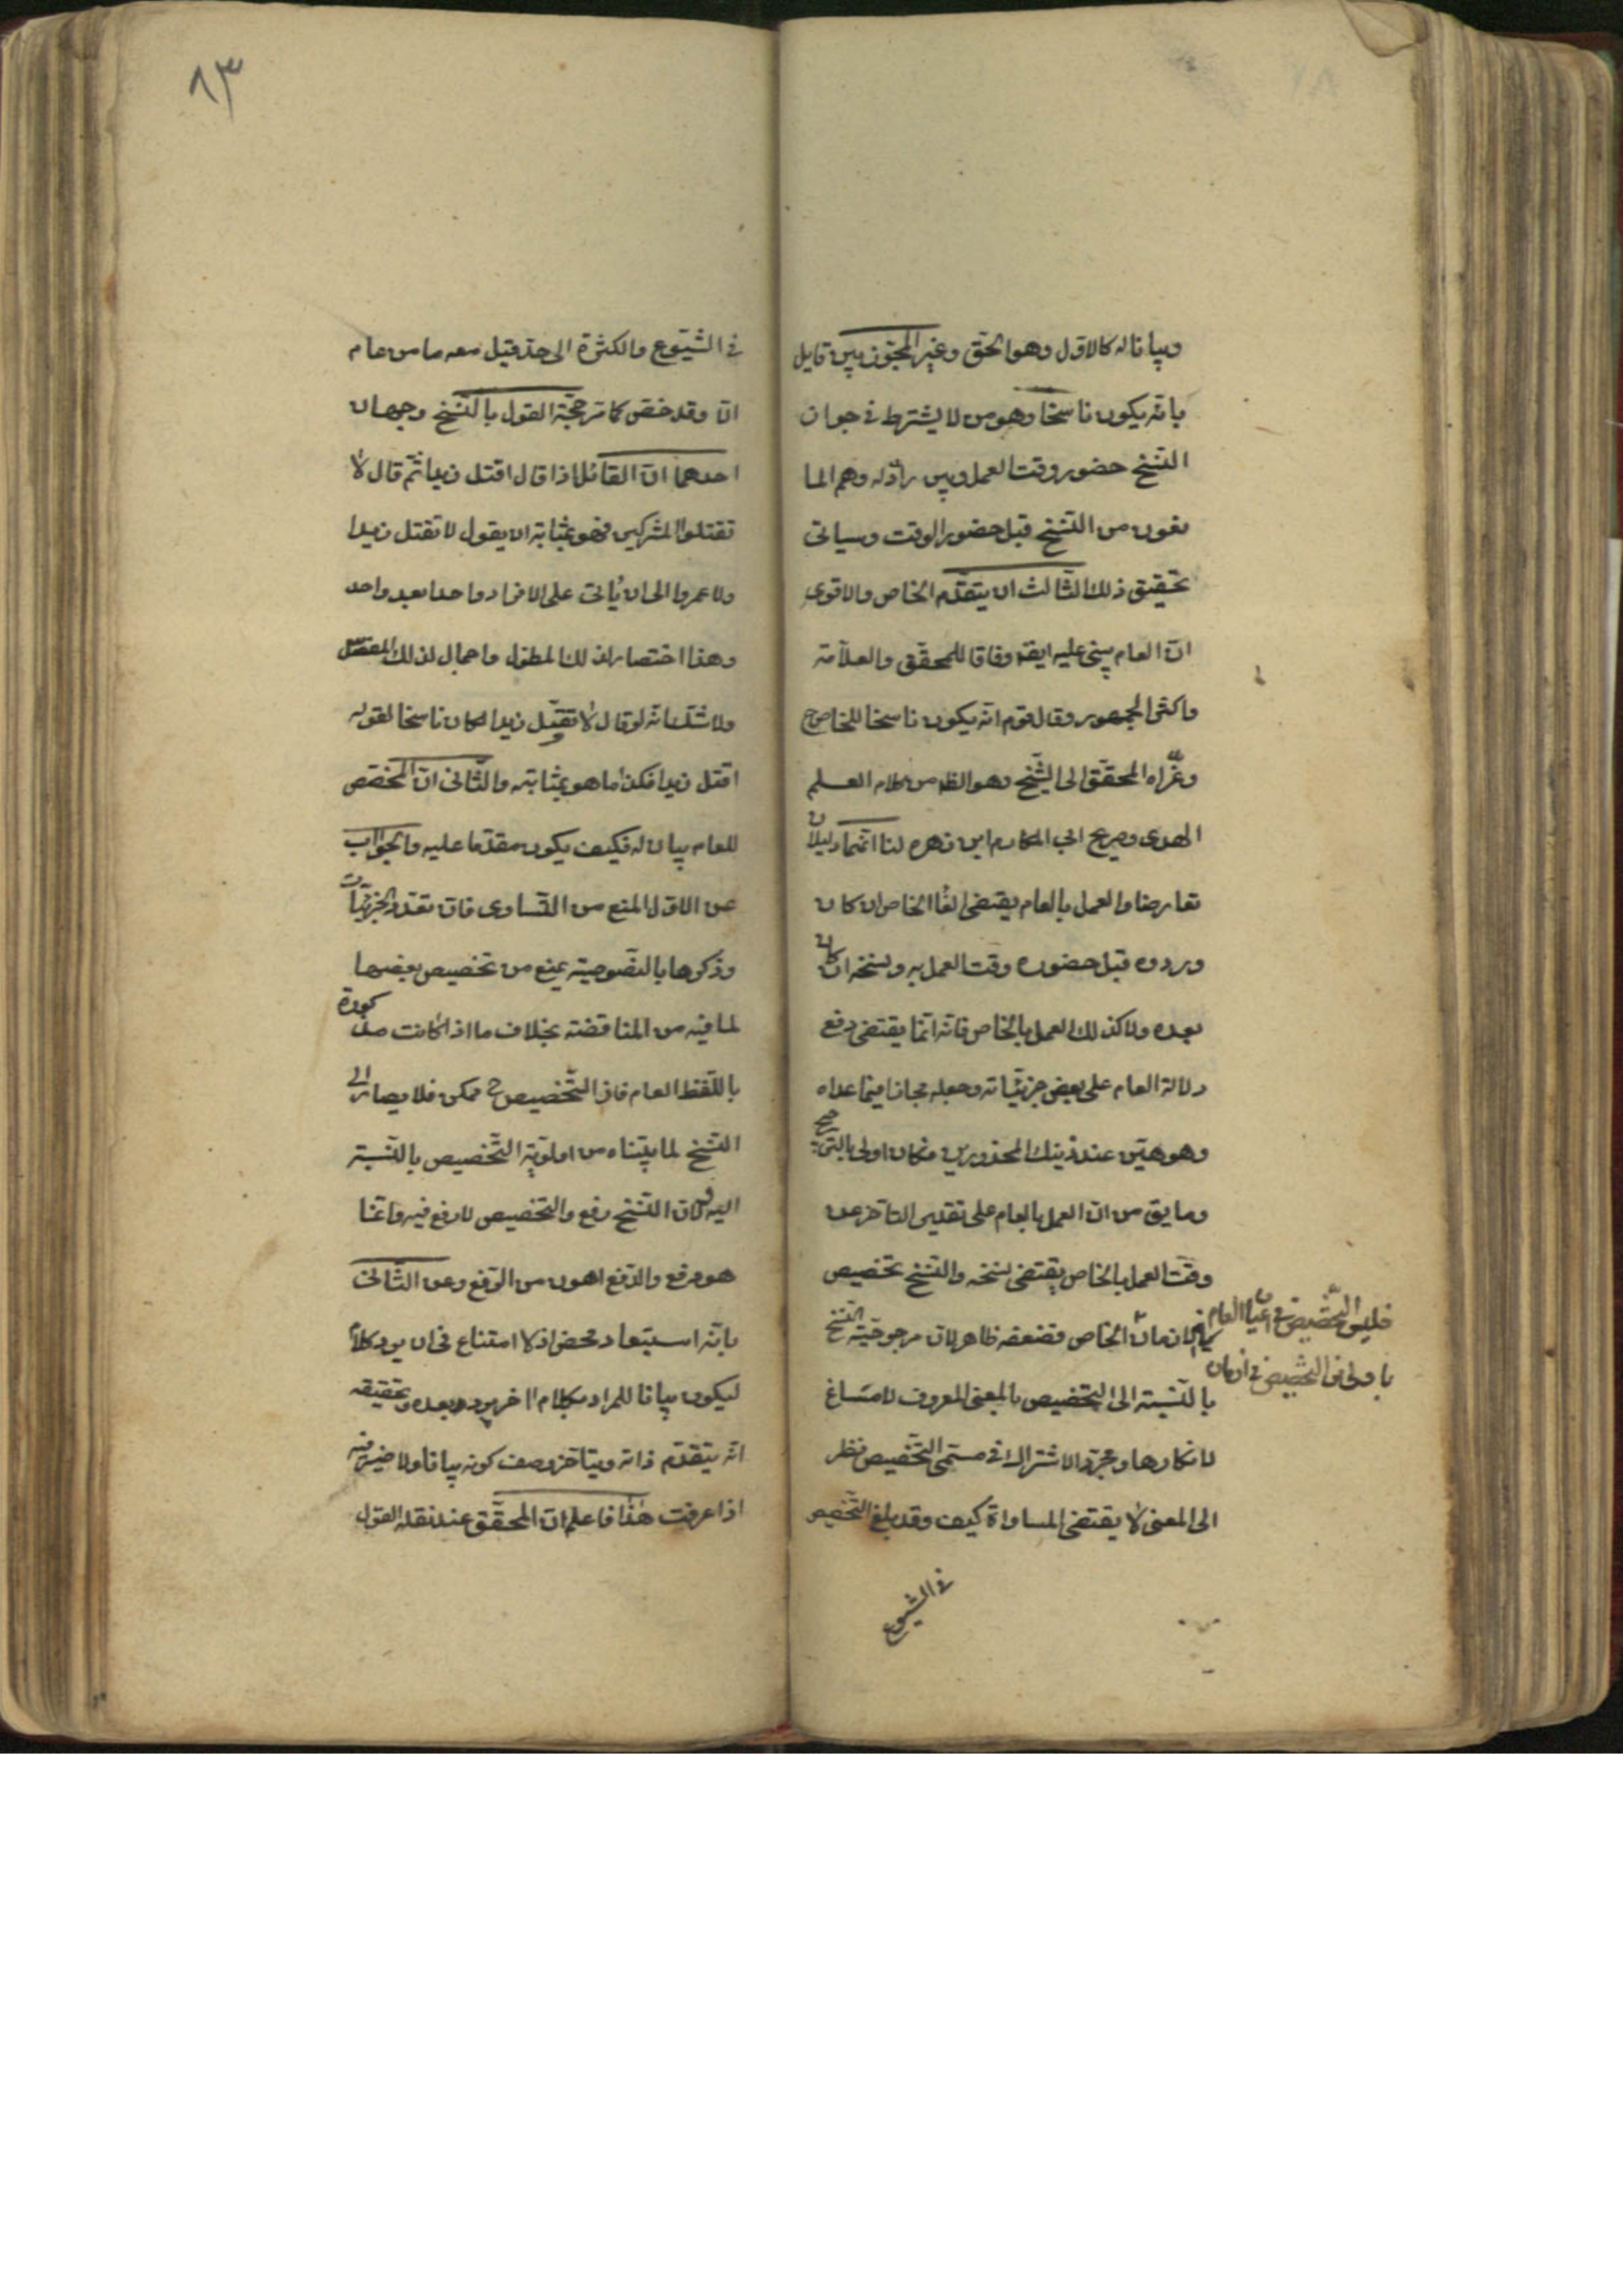 وبيانا له كالاول وهو الحق وغير المجوز بين قايل
بانه يكون ناسخا وهو من لا يشترط في جواز
النسخ حضور وقت العمل وبين رادّ له وهم الما
نعون من النسخ قبل حضور الوقت وسياتى
تحقيق ذلك الثالث ان يتقدم الخاص والاقوى
ان العام يبنى عليه ايضا وفاقا للمحقق والعلامة
واكثر الجمهور وقال قوم انه يكون ناسخا للخاص ح
وعزاه المحقق الى الشيخ وهو الظ من كلام العلم
الهدى وصريح ابى المكارم ابن زهره لنا انهما دليلان
تعارضا والعمل بالعام يقتضى الغاء الخاص ان كان
وروده قبل حضوره وقت العمل به ونسخه ان كان
بعده ولا كذلك العمل بالخاص فانه انما يقتضى دفع
دلالة العام على بعض جزئياته وجعله مجازا فيما عداه
وهو هين عند ذينك المحذورين فكان اولى بالترجيح
وما يق من ان العمل بالعام على تقدير التاخر عن
وقت العمل بالخاص يقتضى نسخه والنسخ تخصيص
فى الازمان الخاص فضعفه ظاهر لان مرجوحية النسخ
فليس التخصيص فى اعيان العام
باولى من التخصيص فى ازمان
بالنسبة الى التخصيص بالمعنى المعروف لا مساغ
لانكارها ومجرد الاشتراك فى مسمى التخصيص نظر
الى المعنى لا يقتضى المساواة كيف وقد بلغ التخصيص
فى الشيوع
٨٣
فى الشيوع والكثرة الى حد قيل معه ما من عام
الا وقد خص كما مر حجة القول بالنسخ وجهان
احدهما ان القائل اذا قال اقتل زيدا ثم قال لا
تقتلوا المشركين فهو بمثابة ان يقول لا تقتل زيدا
ولا عمروا الى ان يأتى على الافراد واحدا بعد واحد
وهذا اختصار لذلك المطول واجمال لذلك المفصل
ولا شك انه لو قال لا تقتل زيدا لكان ناسخا لقوله
اقتل زيدا فكذا ما هو بمثابته والثانى ان المخصص
للعام بيان له فكيف يكون مقدما عليه والجواب
عن الاول المنع من التساوى فان تعدد الجزئيات
وذكرها بالنصوصية يمنع من تخصيص بعضها
لما فيه من المناقضة بخلاف ما اذا كانت مذكورة
باللفظ العام فان التخصيص ح ممكن فلا يصار الى
النسخ لما بيناه من اولوية التخصيص بالنسبة
اليه ولان النسخ رفع والتخصيص لا رفع فيه وانما
هو دفع والدفع اهون من الرفع وعن الثانى
بانه استبعاد محض اذ لا امتناع فى ان يرد كلام
ليكون بيانا للمراد بكلام اخر يرد بعده وتحقيقه
انه يتقدم ذاته ويتاخر وصف كونه بيانا ولا ضير فيه
اذا عرفت هذا فاعلم ان المحقق عند نقله القول